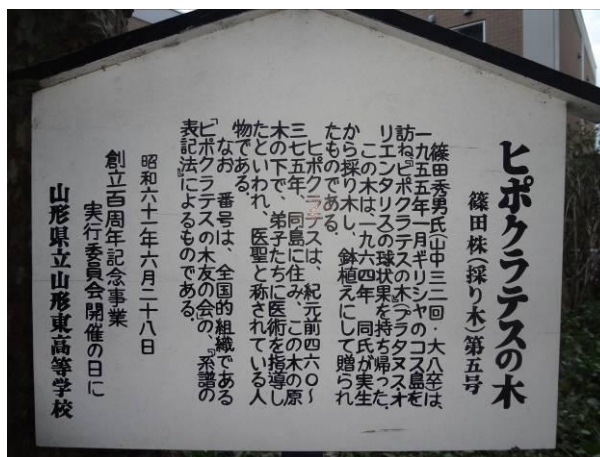 ヒポクラテスの木
篠田株(採り木)第五号
篠田秀男氏(山中三二回・大八卒)は、
一九五五年一月ギリシヤのコス島を
訪ね『ピポクラテスの木』(プラタヌスオ
リエンタリス)の球状果を持ち帰った。
この木は、一九六四年、同氏が実生
から採り木し、鉢植えにして贈られ
たものである。
ヒポクラテスは、紀元前四六〇〜
三七五年、同島に住み、この木の原
木の下で、弟子たちに医術を指導し
たといわれ、医聖と称されている人
物である。
なお 番号は、全国的組織である
「ピポクラテスの木友の会の、『系譜の
表記法』によるものである。
昭和六十一年六月二十八日
創立百周年記念事業
実行委員会開催の日に
山形県立山形東高等学校